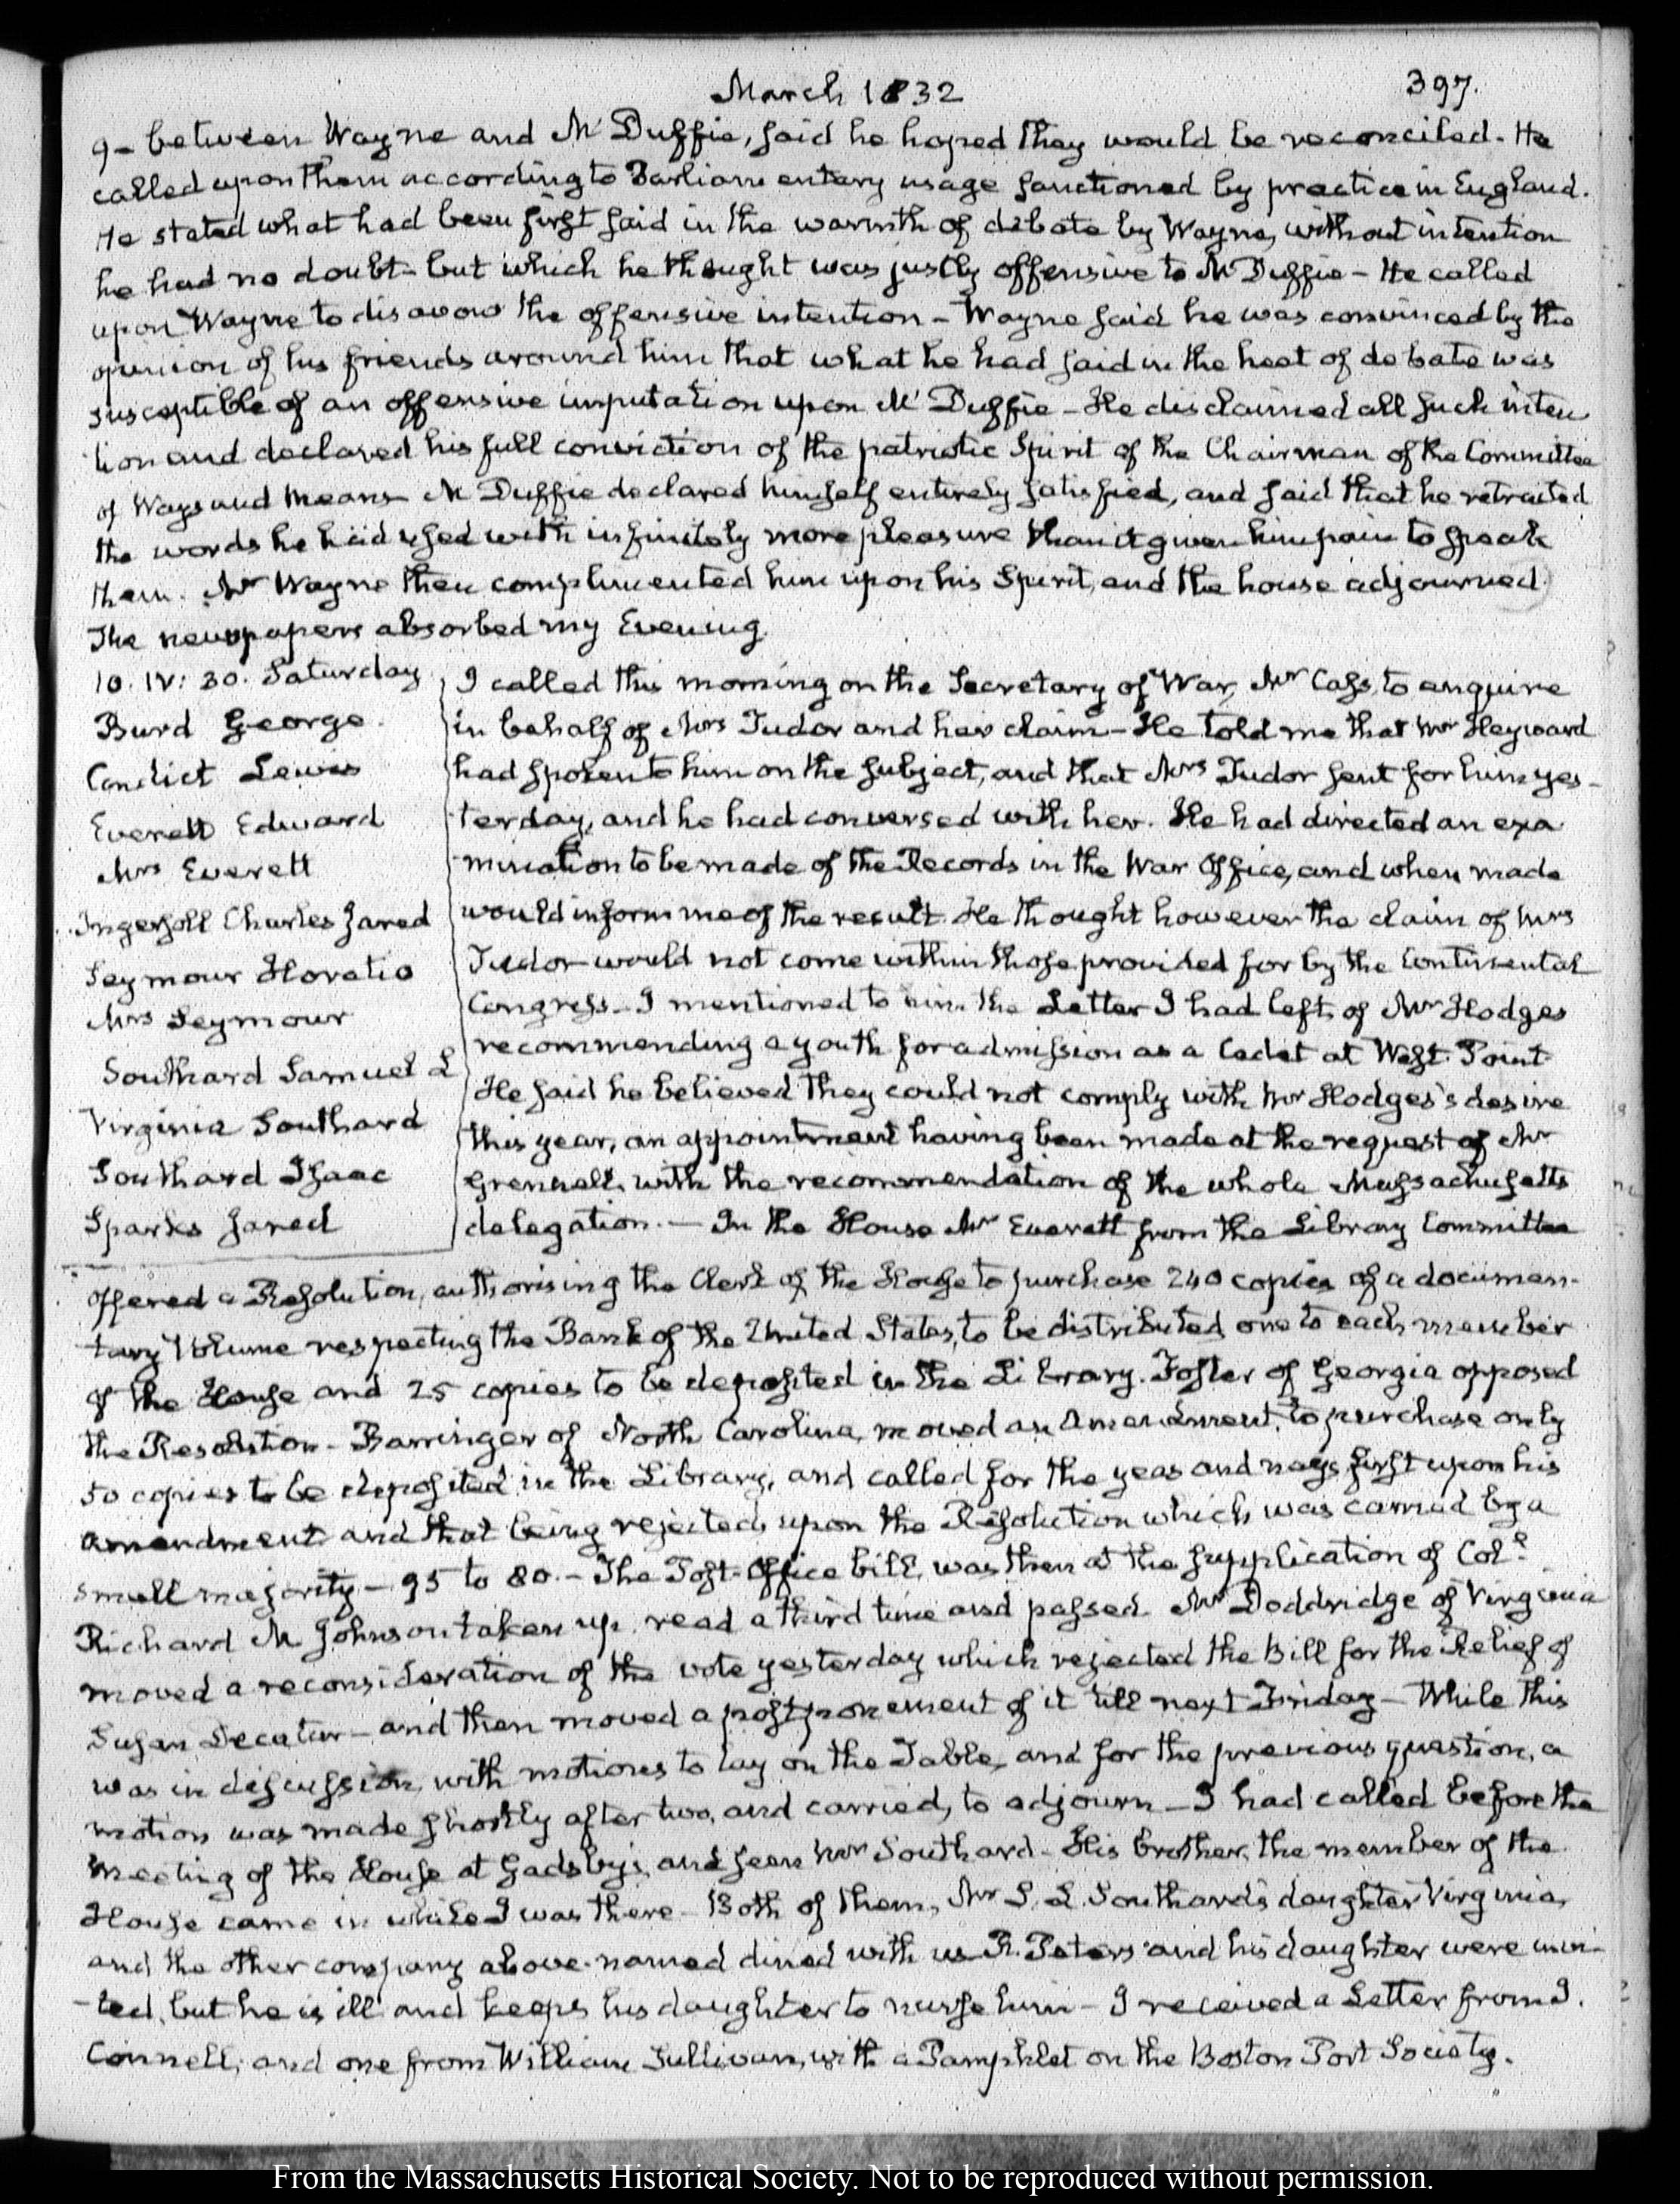 March 1832
397.
9- between Wayne and McDuffie, said he hoped they would be reconciled. He
called upon them according to Parliamentary usage sanctioned by practice in England.
He stated what had been first said in the warmth of debate by Wayne, without intention
he had no doubt- but which he thought was justly offensive to McDuffie - He called
upon Wayne to disavow the offensive intention - Wayne said he was convinced by the
opinion of his friends around him that what he had said in the heat of debate was
susceptible of an offensive imputation upon McDuffie - He disclaimed all such inten
tion and declared his full conviction of the patriotic Spirit of the Chairman of the Committee
of Ways and Means- McDuffie declared himself entirely satisfied, and said that he retracted
the words he had used with infinitely more pleasure than it gave him pain to speak
them. Mr Wayne then complimented him upon his Spirit, and the house adjourned
The newspapers absorbed my Evening.
10. IV: 30. Saturday
Burd George.
Condict Lewis
Everett Edward
Mrs Everett
Ingersoll Charles Jared
Seymour Horatio
Mrs Seymour
Southard Samuel L
Virginia Southard
Southard Isaac
Sparks Jared
I called this morning on the Secretary of War, Mr Cass, to enquire
in behalf of Mrs Tudor and her claim- He told me that Mr Heyward
had spoken to him on the subject, and that Mrs Tudor sent for him yes-
terday, and he had conversed with her. He had directed an exa
mination to be made of the Records in the War Office, and when made
would inform me of the result. He thought however the claim of Mrs
Tudor would not come within those provided for by the Continental
Congress- I mentioned to him the Letter I had left, of Mr Hodges
recommending a youth for admission as a Cadet at West-Point
He said he believed they could not comply with Mr Hodges's desire
this year, an appointment having been made at the request of Mr
Grennell, with the recommendation of the whole Massachusetts
delegation. - In the House Mr Everett from the Library Committee
offered a Resolution, authorising the Clerk of the House to purchase 240 copies of a documen-
tary Volume respecting the Bank of the United States, to be distributed one to each member
of the House and 25 copies to be deposited in the Library. Foster of Georgia opposed
the Resolution- Barringer of North Carolina, moved an Amendment, to purchase only
50 copies to be deposited in the Library, and called for the yeas and nays, first upon his
amendment and that being rejected, upon the Resolution which was carried by a
small majority - 95 to 80. - The Post-Office bill, was then at the supplication of Coll.
Richard M. Johnson taken up, read a third time and passed. Mr Doddridge of Virginia
moved a reconsideration of the vote yesterday which rejected the Bill for the Relief of
Susan Decatur- and then moved a postponement of it till next Friday - While this
was in discussion, with motions to lay on the Table, and for the previous question, a
motion was made shortly after two, and carried, to adjourn - I had called before the
meeting of the House at Gadsby's, and seen Mr Southard- His brother, the member of the
House came in while I was there- Both of them, Mr S. L. Southard's daughter Virginia,
and the other company above-named dined with us. R. Peters and his daughter were invi-
ted, but he is ill and keeps his daughter to nurse him - I received a Letter from J.
Connell, and one from William Sullivan, with a Pamphlet on the Boston Port Society.
From the Massachusetts Historical Society. Not to be reproduced without permission.